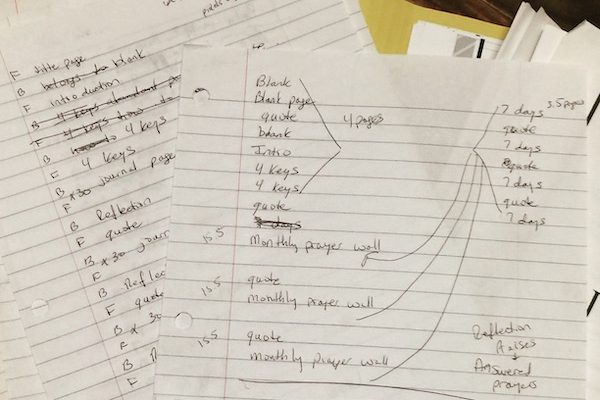 F title page
B belongs to blank
F introduction
B 4 keys abundant
F 4 keys how to
B to 4 keys
F 4 keys
B x 30 journal page
F
B Reflection
F quote
B x 30 jour
F
B Reflec
F quote
B x 30
F
B R
F
Blank
Blank page
quote
blank
Intro
4 keys
4 keys
quote
7 days
4 pages
15.5 monthly prayer wall
quote
15.5 monthly prayer wall
quote
15.5 monthly prayer wall
7 days 3.5 pages
quote
7 days
quote
7 days
quote
7 days
Reflection
Praises
Answered
prayers